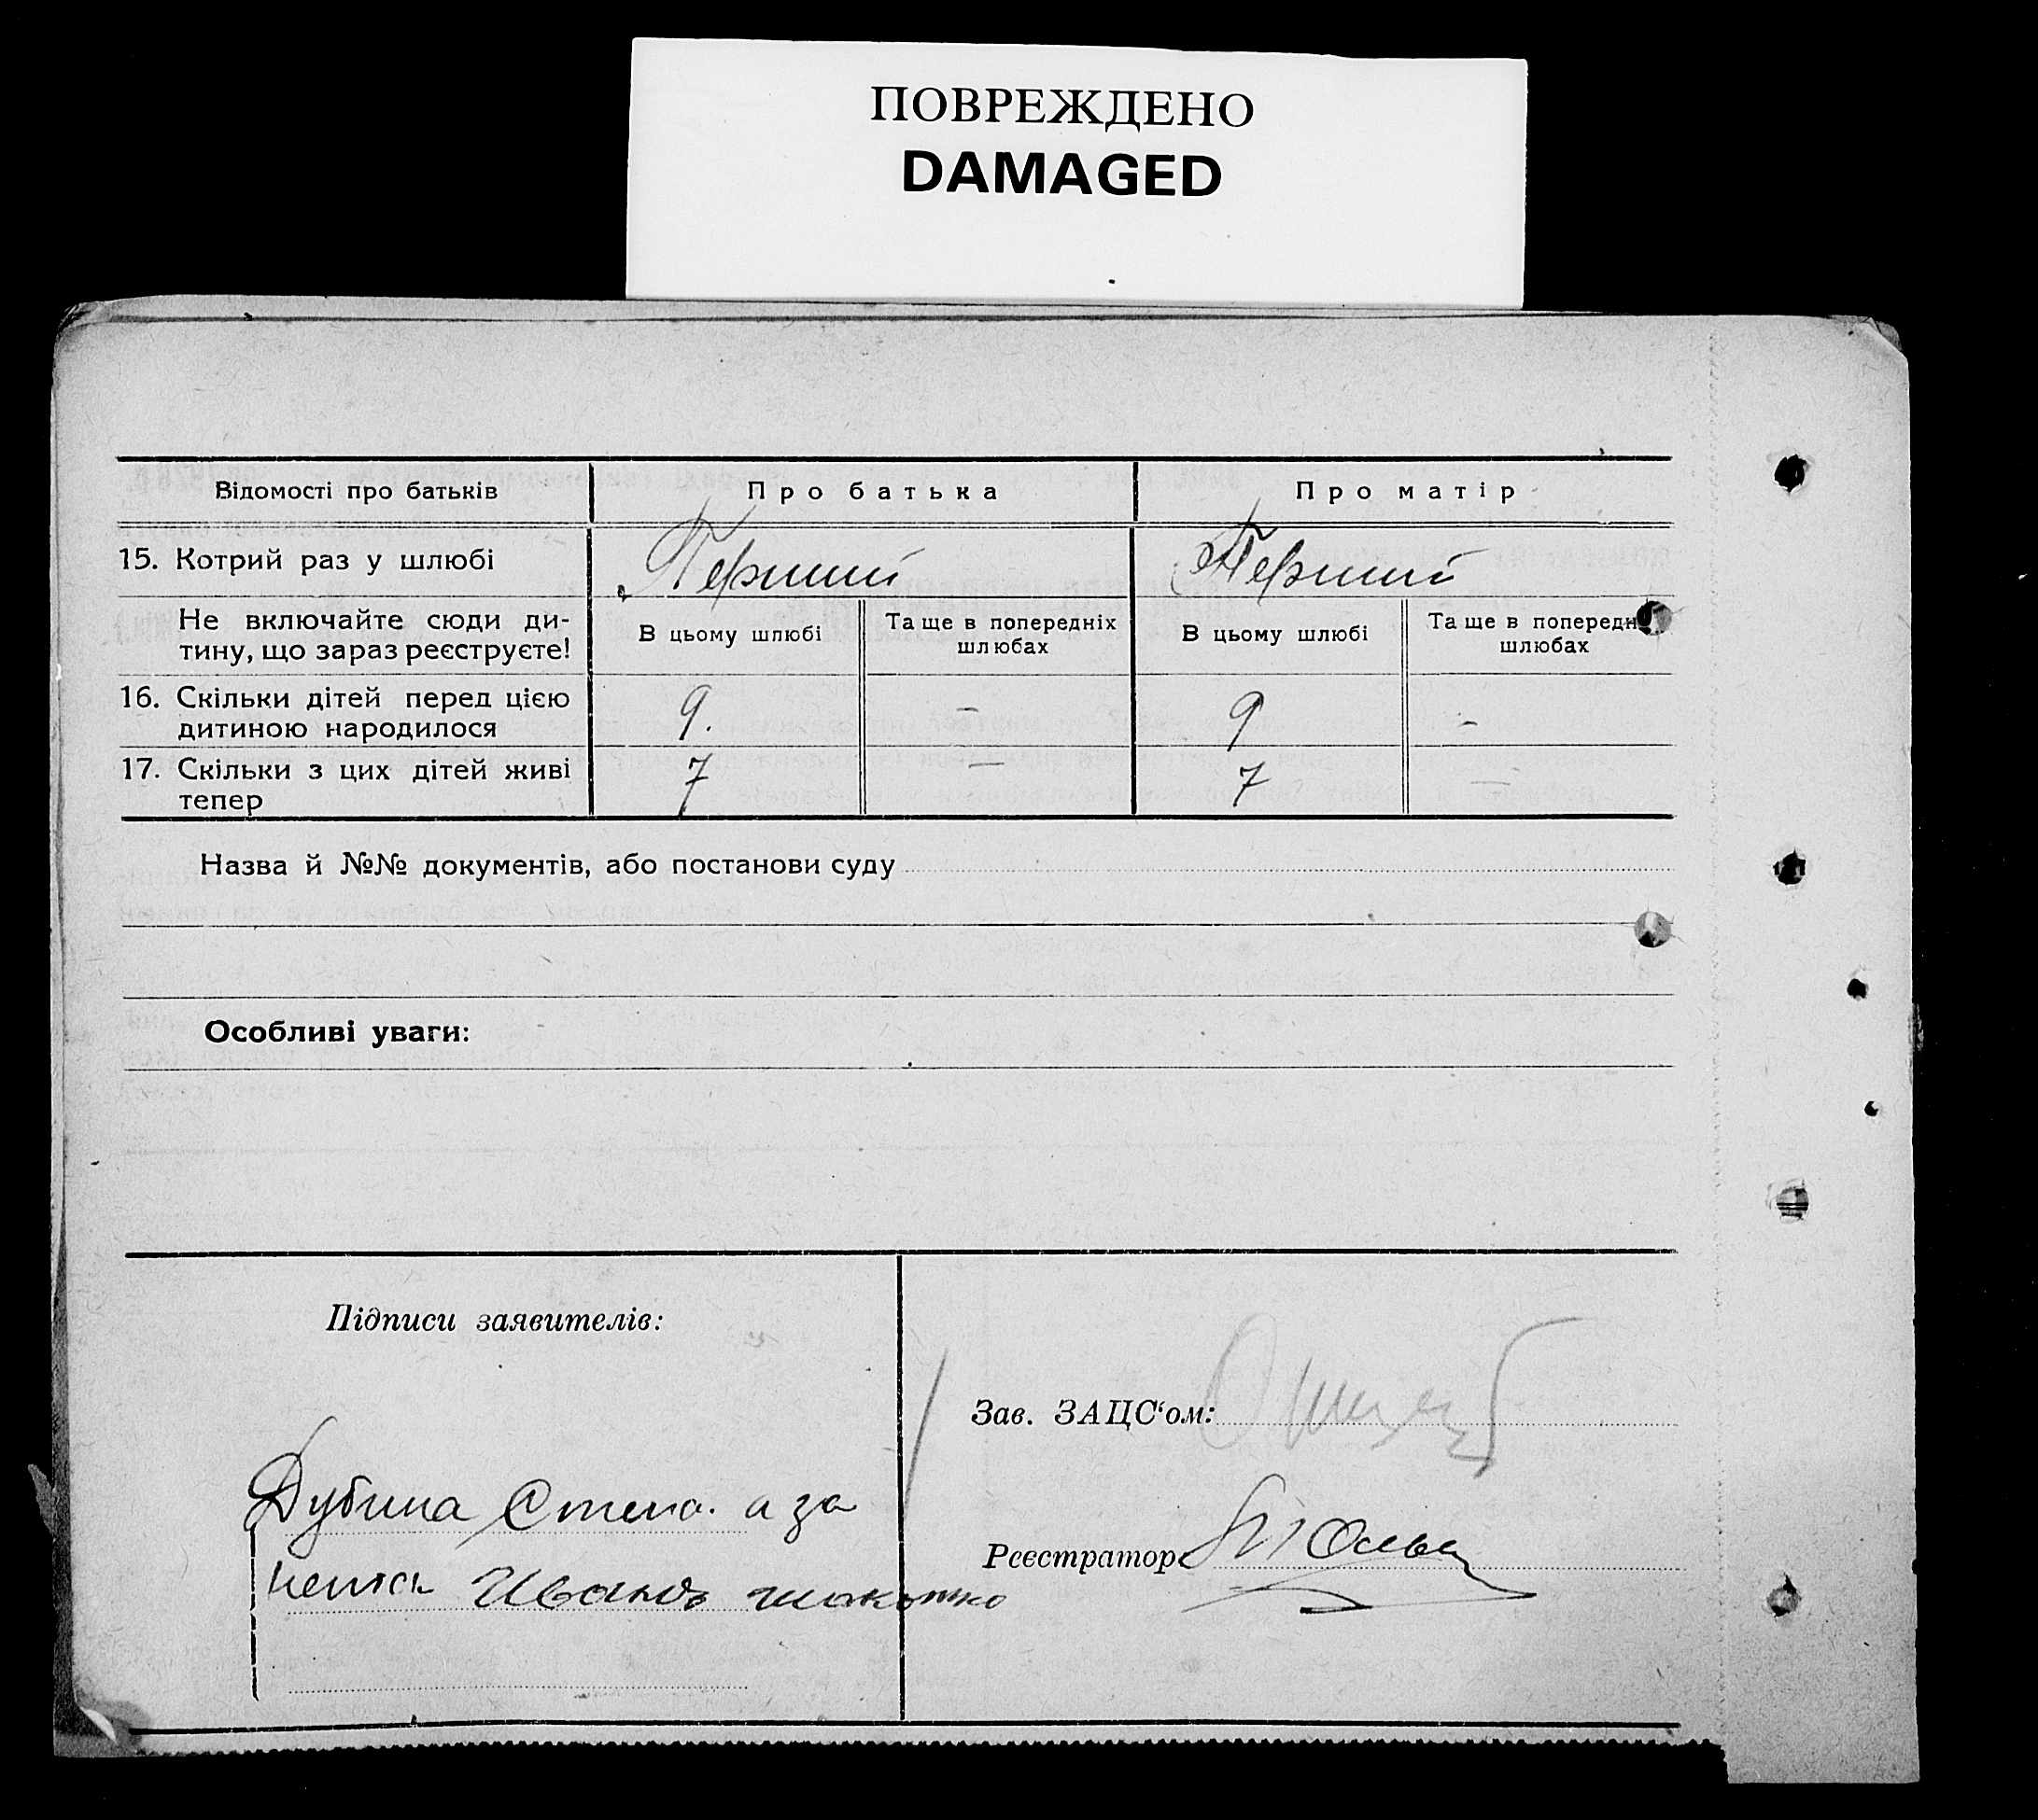 ПОВРЕЖДЕНО
DAMAGED
Відомості про батьків
Про батька
Про матір
15. Котрий раз у шлюбі
Перший
Перший
Не включайте сюди ди-
тину, що зараз реєструєте!
В цьому шлюбі
Та ще в попередніх
шлюбах
В цьому шлюбі
Та ще в попередн
шлюбах
16. Скільки дітей перед цією
дитиною народилося
9.
–
9
–
17. Скільки з цих дітей живі
тепер
7
—
7
—
Назва й №№ документів, або постанови суду
Особливі уваги:
Підписи заявителів:
Зав. ЗАЦС‘ом:
Дубина Степа. а за
Реєстратор
Иванъ